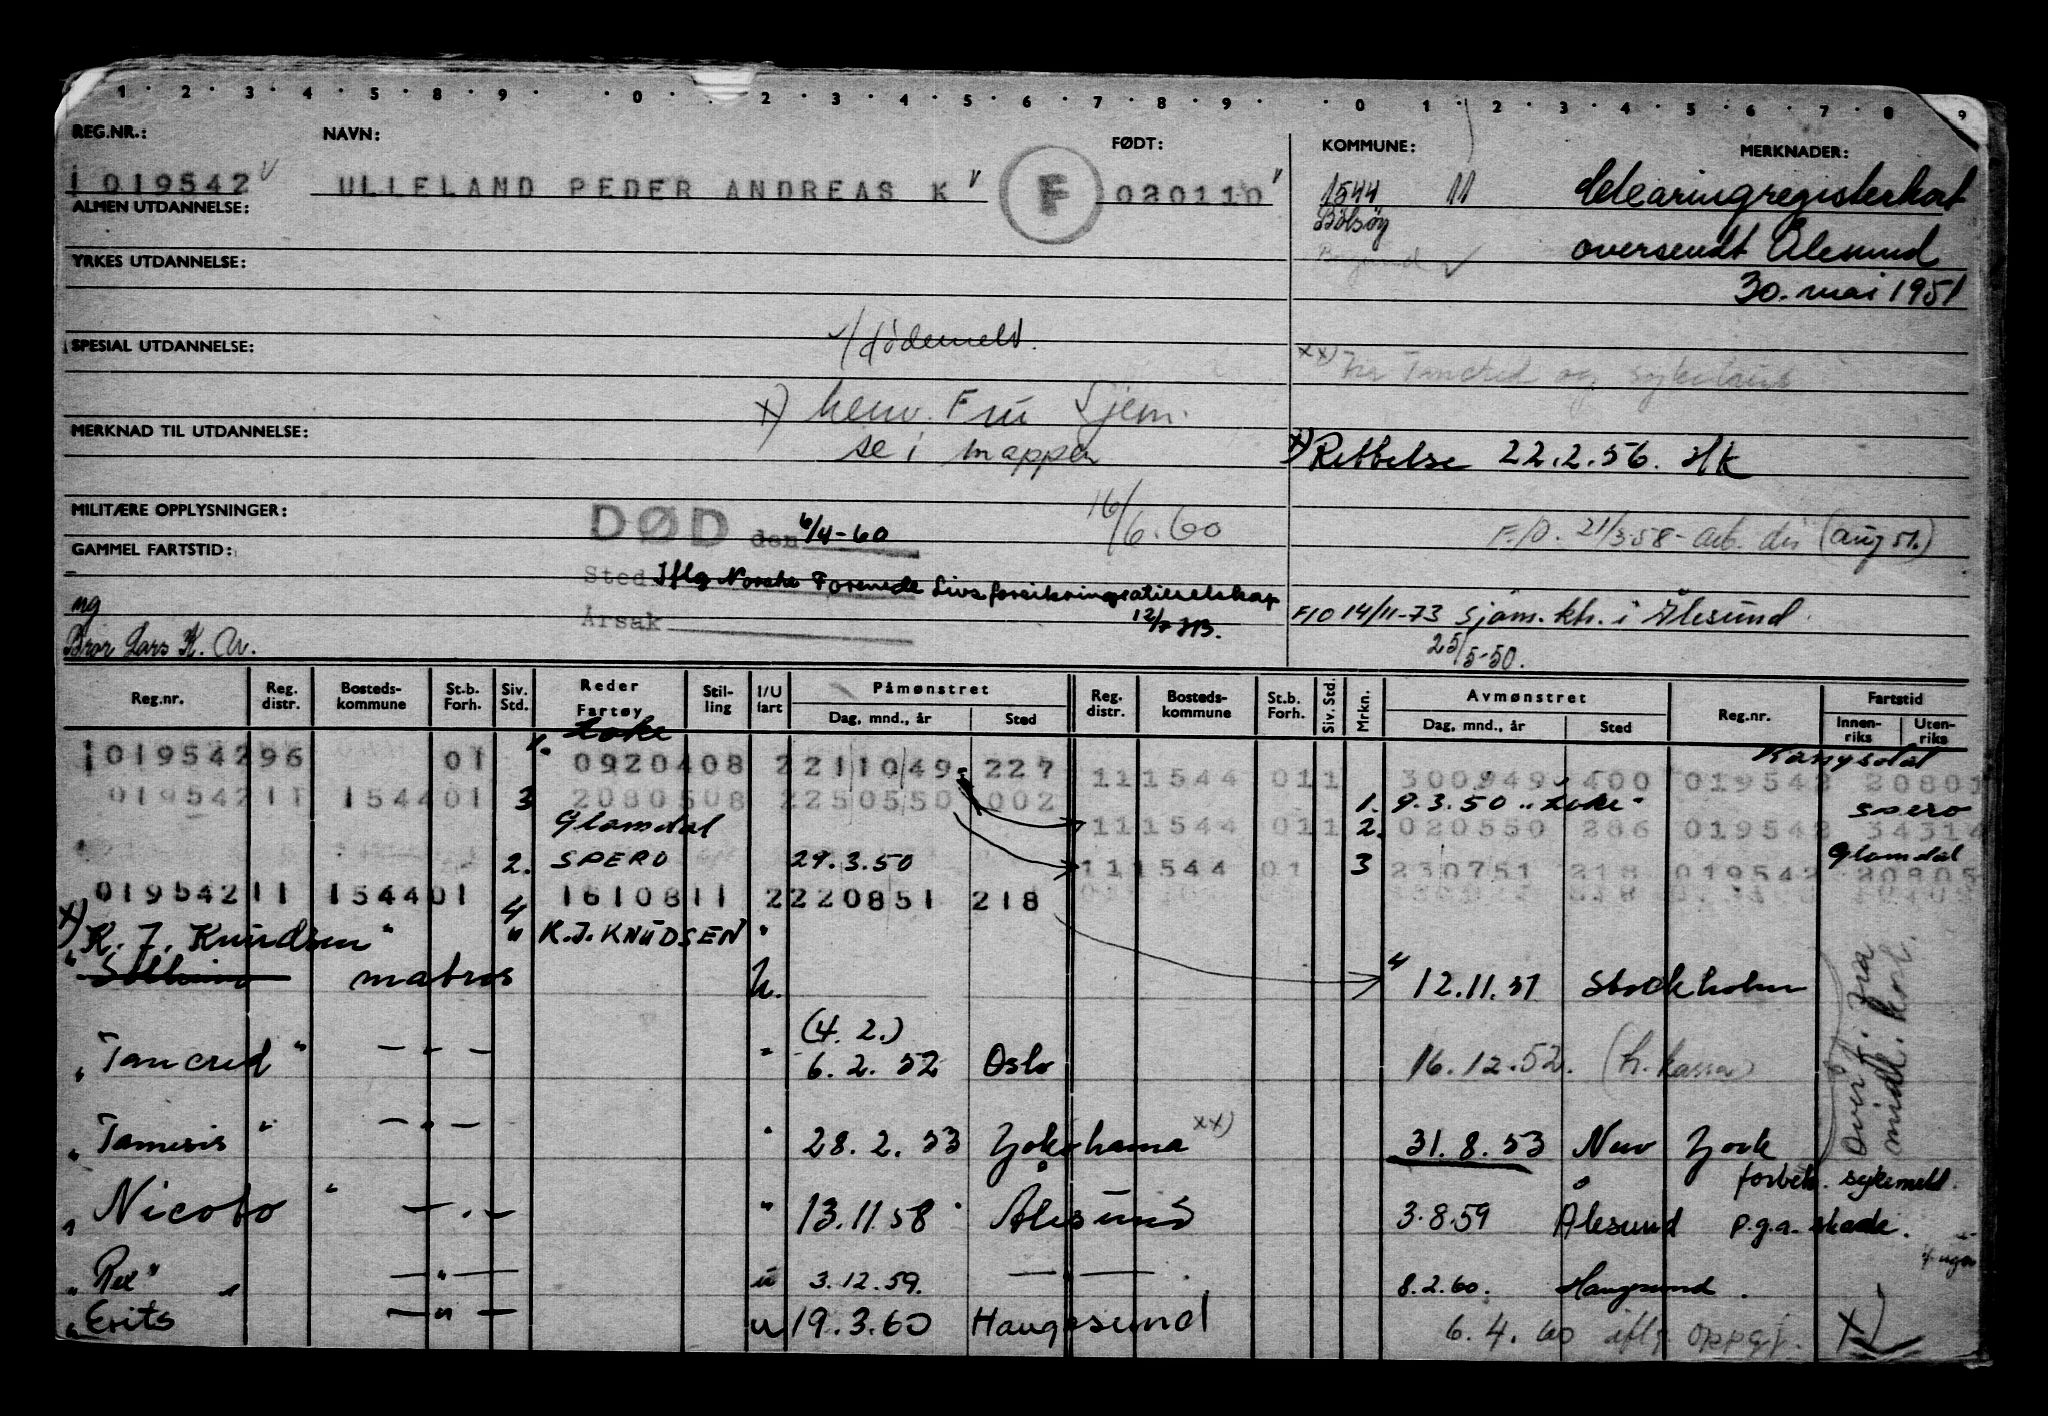 1 2 3 4 5 8 9 0 2 3 4 5 6 7 8 9 0 1 2 3 4 5 6 7 8 9
REG.NR.: NAVN: FØDT: KOMMUNE: MERKNADER:
1019542 ULLELAND PEDER ANDREAS K F 020110 1544 11 Clearingregisterkort
ALMEN UTDANNELSE: Bolsøy oversendt Ålesund
YRKES UTDANNELSE: 30. mai 1951
dødsmeld.
SPESIAL UTDANNELSE:
xx) Tancred og
x) henv. Fru Sjem.
MERKNAD TIL UTDANNELSE: se i mappen x) Rettelse 22.2.56. HK
MILITÆRE OPPLYSNINGER: DØD den 6/4-60 16/6.60 F/O. 21/3-58 - arb. dir (aug 51.)
GAMMEL FARTSTID:
Sted Iflg Norske Forenede Livsforsikringsaktieselskap
ng Årsak 12/7 HB. F/O 14/11-73 Sjøm. kh. i Ålesund
Bror Lars K. U. 25/5-50.
Reg.nr. Reg. distr. Bosteds-kommune St.b. Forh. Siv. Std. Reder Fartøy Stil-ling I/U fart Påmønstret Reg. distr. Bosteds-kommune St.b. Forh. Siv. Std. Mrkn. Avmønstret Reg.nr. Fartstid
Dag, mnd., år Sted Dag, mnd., år Sted Innen-riks Uten-riks
1. Loke
101954296 01 0920408 2211049 227 Kongsdal
111544 011 300949 400 019542 20801
01954211 154401 3 2080508 2250550 002 1. 9.3.50 "Loke" Spero
Glomdal 111544 011 2. 020550 286 019542 34314
2. SPERO 29.3.50 Glomdal
111544 01 3 230751 218 019542 20805
01954211 154401 4 1610811 2220851 218
x) K. J. Knudsen" " K.J. KNUDSEN "
matros u. 4 12.11.51 Stockholm
(4. 2.)
"Tancred" — " — " 6. 2. 52 Oslo 16.12.52. (h. kassa)
"Tamesis" — " — " 28. 2. 53 Yokohama xx) 31. 8. 53 New York
forbeh. sykemeld.
"Nicobo" — " — " 13.11.58 Ålesund 3.8.59 Ålesund p.g.a. skade.
"Rex" — " — u 3.12.59. — " — 8.2.60. Haugesund.
"Erits — " — u 19.3.60 Haugesund 6.4.60 iflg oppgf. x)
Overf. fra
midl. kort.